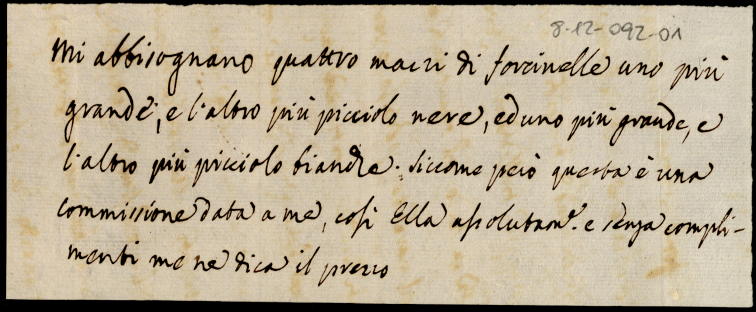 8-12-092-01
Mi abbisognano quattro mazzi di forcinelle uno più
grande, e l'altro più picciolo nere, ed uno più grande, e
l'altro più picciolo biandze. Siccome però questa è una
commissione data a me, così Ella assolutam.e e senza compli-
menti me ne dica il prezzo